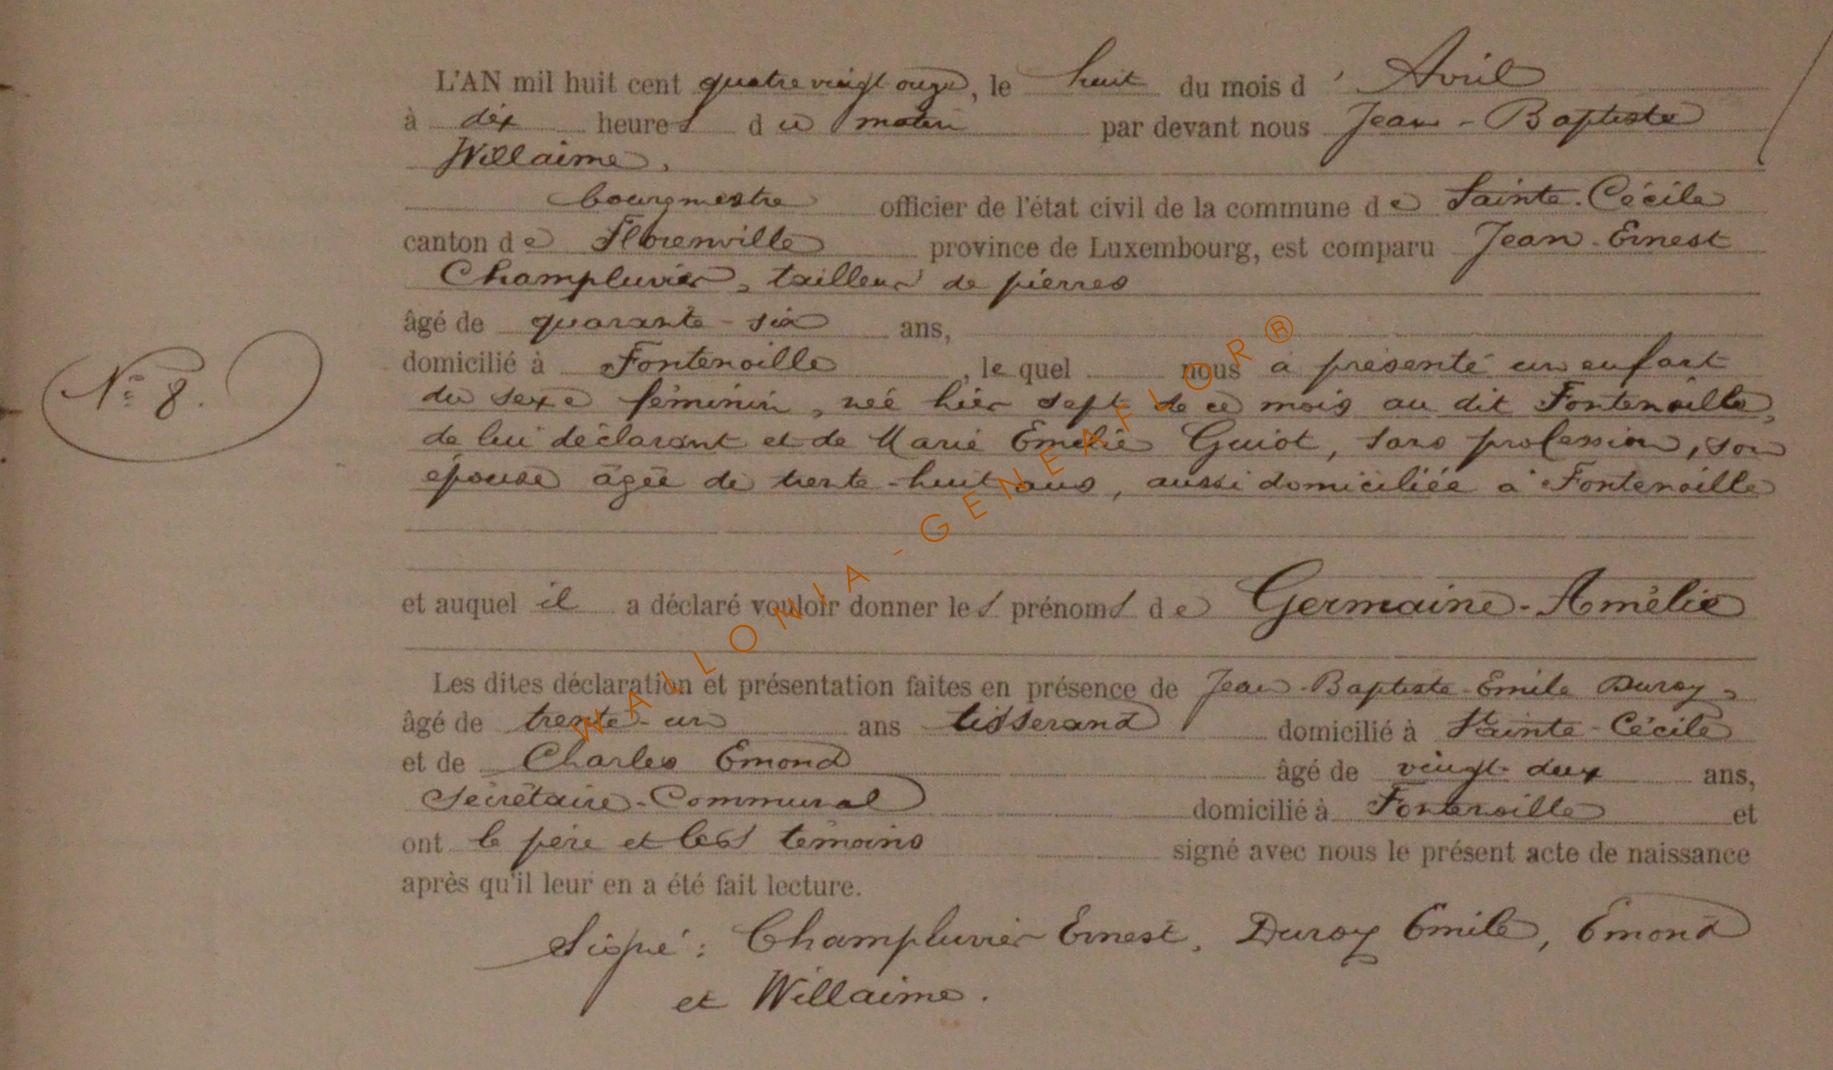 L'AN mil huit cent quatre vingt onze, le huit du mois d' Avril
à dix heures du matin par devant nous Jean-Baptiste
Willaime,
bourgmestre officier de l'état civil de la commune de Sainte-Cécile
canton de Florenville province de Luxembourg, est comparu Jean-Ernest
Champluvier, tailleur de pierres
âgé de quarante-six ans,
domicilié à Fontenoille, lequel nous a présenté un enfant
du sexe féminin, née hier sept de ce mois au dit Fontenoille,
de lui déclarant et de Marie Emélie Guiot, sans profession, son
épouse âgée de trente-huit ans, aussi domiciliée à Fontenoille
N° 8.
et auquel il a déclaré vouloir donner les prénoms de Germaine-Amélie
Les dites déclaration et présentation faites en présence de Jean-Baptiste-Emile Duroy,
âgé de trente-un ans tisserand domicilié à Sainte-Cécile
et de Charles Emond âgé de vingt-deux ans,
Secrétaire-Communal domicilié à Fontenoille et
ont le père et les témoins signé avec nous le présent acte de naissance
après qu'il leur en a été fait lecture.
Signé: Champluvier Ernest, Duroy Emile, Emond
et Willaime.
WALLONIA-GENEAFLOR®